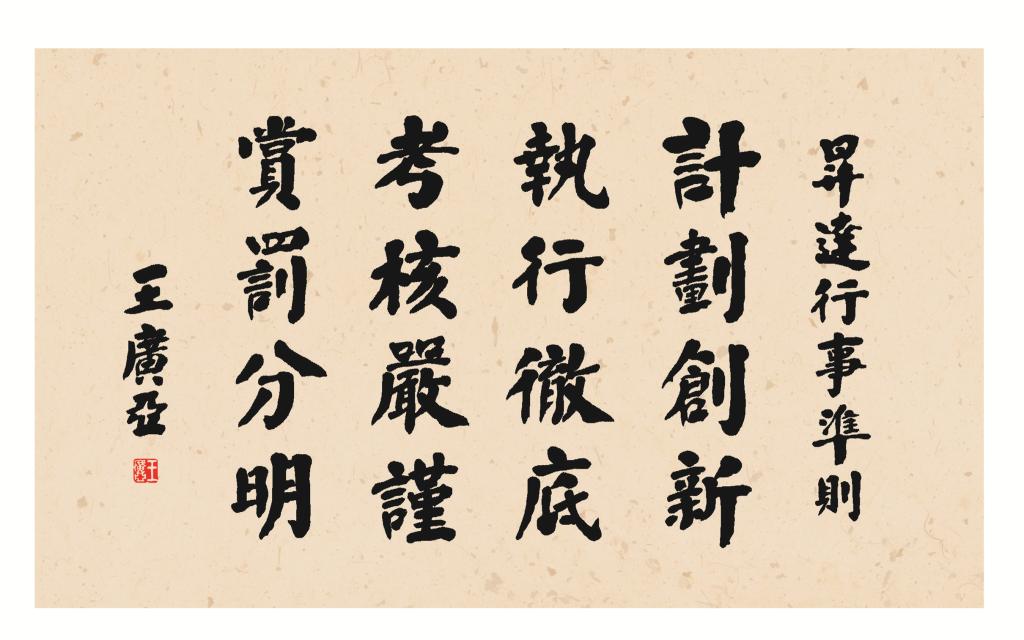 昇達行事準則
計劃創新
執行徹底
考核嚴謹
賞罰分明
王廣亞
王廣亞